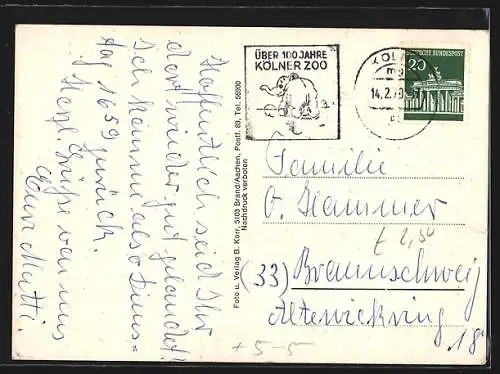 Hoffentlich seid Ihr
dort wieder gut gelandet!
Ich komme also Diens=
tag 1659 zurück.
Herzl. Grüße von uns
Eure Mutti.
Foto u. Verlag B. Kerr, 5103 Brand/Aachen, Postf. 80, Tel. 68900
Nachdruck verboten
ÜBER 100 JAHRE
KÖLNER ZOO
KÖLN
14.2.70
DEUTSCHE BUNDESPOST
20
Familie
O. Hammer
£ 2,50
(33) Braunschweig
Altewiekring
18
+5-5